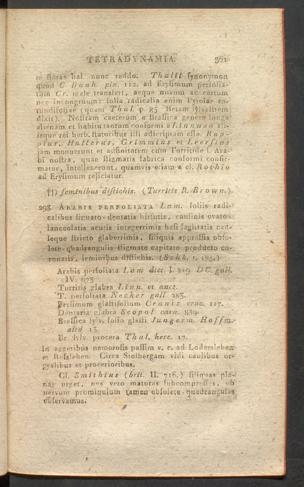 TETRADYNAMIA 361
te floras hal. nunc reddo. Thalii synonymon
quod C Bauh. pin. 112. ad Erysimum perfolia-
tum Cr. male transtert, aeque nimium ac
nec incongruum folia radicalia enim
(quem Thal. p. 25 Betam silvestrem
dixit). Nostram caeterum a Brassica genere longe
alienam et habitu tantum conformi a Linnaeo
que rei herb. staturibus illi adscriptam esse, Rup-
pius, Hallerus, Grimmius et Leersius
jam monuerunt et affinitatem cum Turritide s. Ara-
bi nostra, quae stigmatis fabrica conformi confir-
matur, intellexerunt, quamvis etiam a cl. Rothio
ad Erysimum rejiciatur.
††) seminibus distichis. (Turritis R. Brown.).
998 ARABIS PERFOLIATA Lam. foliis radi-
calibus sinuato-dentatis hirtutis, caulinis ovato-
lanceolatis acutis integerrimis basi sagittatis cau-
leque stricto glaberrimis, siliquis appressis obso-
lete quadrangulis stigmate capitato
ronatis, seminibus distichis. (Schk. t.
Arabis perfoliata Lam dict. I. 219. DC. gall.
IV. 675
Turritis glabra Linn. et auct.
T. perfoliata Necker gall 285.
Erysimum glastifolium Crantz crac. 117.
Dentaria glabra Scopol carn. 839.
Brassica sylv. folio glasti Jungerm Hoffm.
altd 13.
Br. sylv. procera Thal. herc. 17.
In aggeribus nemorosis passim v. c. ad Lodersleben
et Rossleben. Circa Stolbergam vidi caulibus or-
gyalibus et procerioribus.
Cl. Smithius (brit. II. 716.) siliquas pla-
nas urget, nos vero maturas subcompressas, ob
nervum prominulum tamen obsolete quadrangulas
observamus.